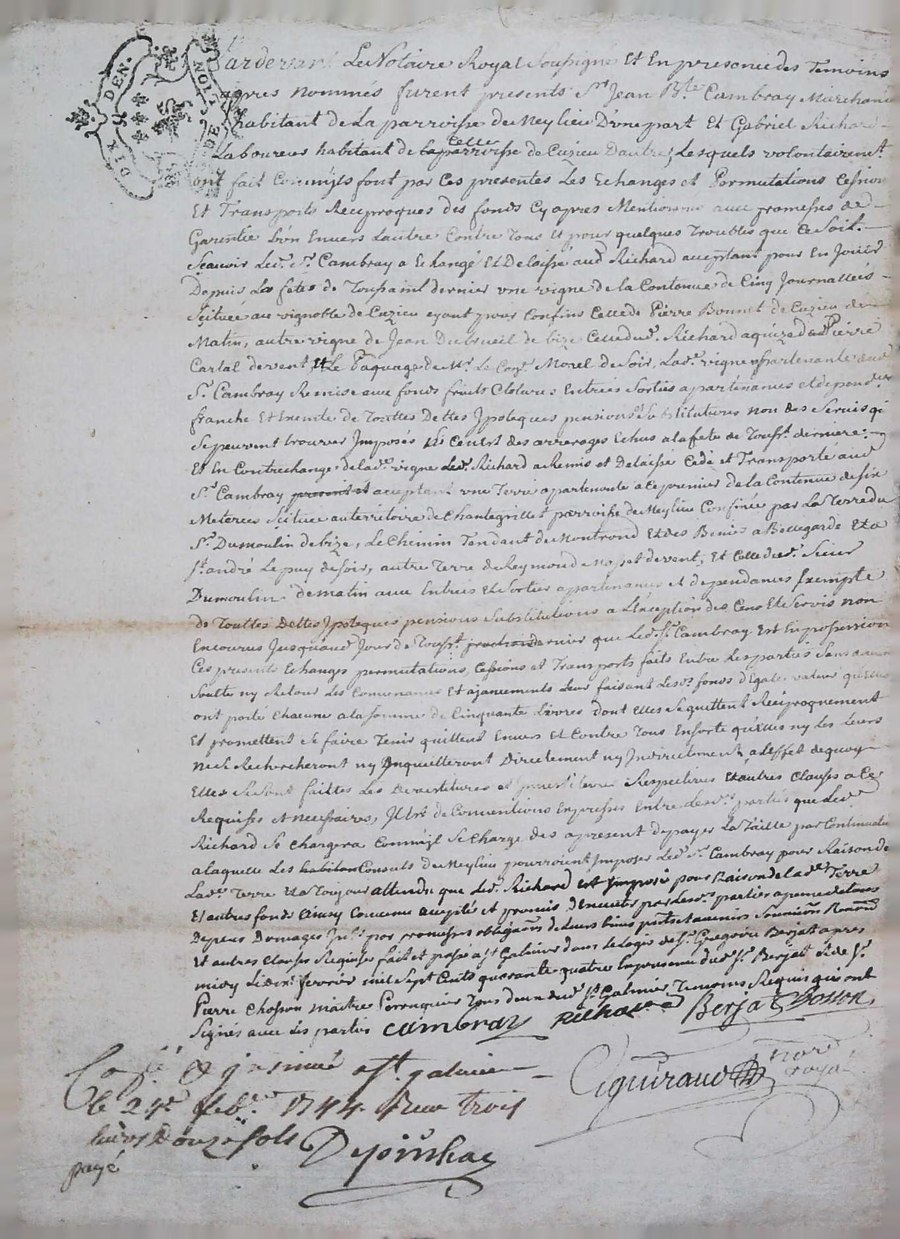 DIX DEN.
Pardevant Le Notaire Royal Soussigné Et En presence des Temoins
apres nommés furent presents Sr Jean Bte Cambray Marchand
habitant de La parroisse de Meylieu D'une part Et Gabriel Richard
Laboureur habitant de celle de Cuzieu D'autre, Lesquels volontairemt
ont fait Comm'ils font par Ces presentes Les Echanges et Permutations Cession
Et Transports Reciproques des fonds Cy apres Mentionnes avec promesses de
Garentie L'un Envers Lautre Contre Tous Et pour quelques Troubles que Ce Soit.
Scauoir Led. Sr. Cambray a Echangé Et Delaissé aud Richard acceptant pour En Jouir
Depuis La fete de Toussaint dernier vne vigne de la Contenue de Cinq Journallees
Scituée au vignoble de Cuzieu ayant pour Confins Celle de Pierre Bonnet de Cuzieu de
Matin, autre vigne de Jean Dubrueil de bize Celle dud. Richard aquise de Pierre
Cartal de vent Et Le Paquage de Mr. Le Morel de Soir, Lade vigne apartenante aud
Sr. Cambray Remise aux fonds fruits Clotures Entrées Sorties apartenances et depend.
franche Et Exemte de Touttes Dettes Ypoteques pensions Substitutions non des Servis qi
Se peuvent trouver Imposés des arrerages Echus a la fete de Touss. derniere.
Et En Contrechange de lade vigne Led. Richard a Remis et Delaissé Cedé et Transporté aud
Sr. Cambray acceptant vne Terre apartenante a Ce premier de la Contenue de six
Meterées Scituée au territoire de Chantegrillet parroisse de Meylieu Confinée par La Terre du
Sr. Dumoulin de bize, Le Chemin Tendant de Montrond Et des a Bellegarde Et a
St. andré Le puy de Soir, autre Terre de Reymond de vent, Et Celle dud. Sieur
Dumoulin de matin aux Entrées Et Sorties apartenances et dependances Exempte
de Touttes Dettes Ypoteques pensions Substitutions a L'Exception des Cens Et Servis non
Encourus Jusqu'au Jour de Touss. dernier que Led. Sr. Cambray Est En possession
Ces presents Echanges permutations, Cessions et Transports faits Entre Les parties Sans aucune
Soulte ny Retour Les Et Leur faisant Lesd. fonds d'Egale valeur qu'Elles
ont porté Chacune a la Somme de Cinquante Livres dont Elles Se quittent Reciproquement
Et promettent Se faire Tenir quittent Envers et Contre Tous Ensorte qu'Elles ny les leurs
n'En Rechercheront ny Inquietteront Directement ny Indirectement, a L'effet de quoy
Elles Se Sont faittes Les Devestitures et Respectives Et autres Clauses a Ce
Requises Et necessaires, de Conventions Expresses Entre Lesd. parties que Led.
Richard Se Chargera Comm'il Se Charge des a present de payer La Taille par Continuation
a laquelle Les Consuls de Meylieu pourroient Imposer Led. Sr. Cambray pour Raison de
Lade. Terre Et a Toujour attendu que Led. Richard est Imposé pour Raison de lade Terre
Et autres fonds Convenu accepté et promis d'Executer par Lesd. parties a peine de tous
Depens Domages par promesses obligations de Leurs biens presents et avenir
Et autres Clauses Requises fait et passé a St Galmier dans le Logis de Sr. Gregoire Berjat apres
midy Le fevrier mil Sept Cents quarante quatre En presence dud. Sr. Berjat Et de Sr.
Pierre Chosson maitre Perruquier Tous deux dud. St. Galmier Temoins Requis qui ont
Signés avec Les parties Cambray Richard Berjat Chosson
Aguiraud Nore Royal
a St. galmier
le 24e feb. 1744 Reçu trois
livres Douze Sols
payé